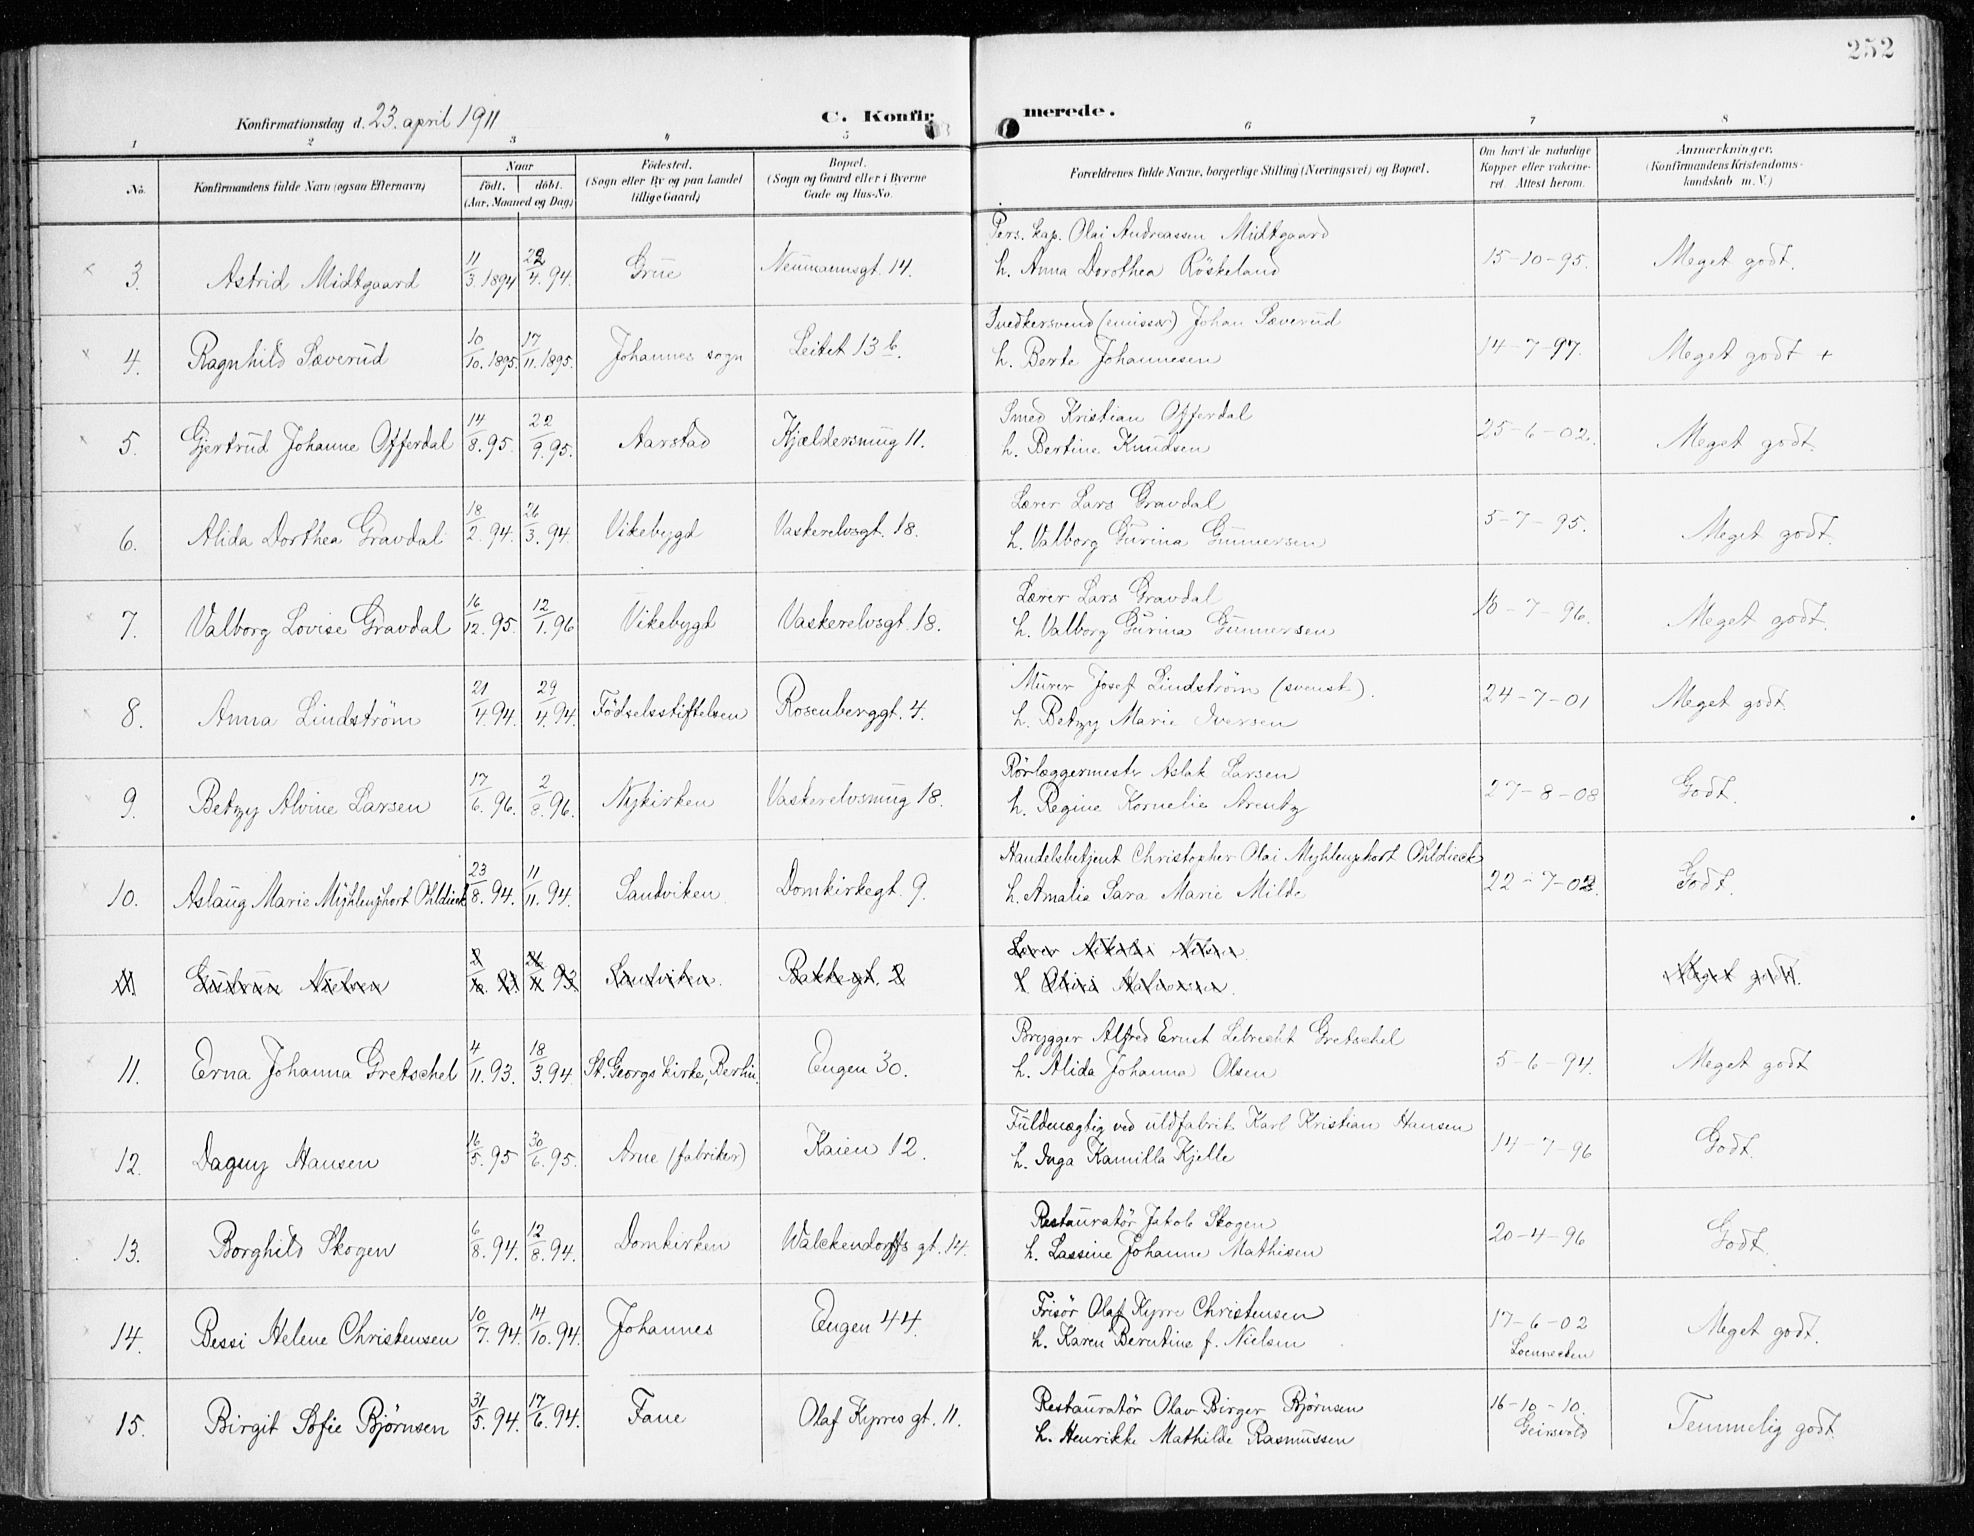 252
Konfirmationsdag d. 23. april 1911
C. Konfirmerede.
1 2 3 " 5 6 7 8
No.
Konfirmandens fulde Navn (ogsaa Efternavn)
Naar
født. døbt.
(Aar, Maaned og Dag)
Fødested.
(Sogn eller By og paa Landet
tillige Gaard)
Bopæl.
(Sogn og Gaard eller i Byerne
Gade og Hus-No.
Forældrenes fulde Navne, borgerlige Stilling (Næringsvei) og Bopæl.
Om havt de naturlige
Kopper eller vakcine-
ret. Attest herom.
Anmærkninger.
(Konfirmandens Kristendoms-
kundskab m. V.)
3. Astrid Midtgaard 11/3. 1894 22/4. 94. Grue Neumannsgt. 14. Pers. kap. Olai Andreassen Midtgaard
h. Anna Dorothea Röskeland 15-10-95. Meget godt.
4. Ragnhild Sæverud 10/10. 1895. 17/11. 1895. Johannes sogn Leitet 13 b. Snedkersvend (emissær) Johan Sæverud
h. Berte Johannesen 14-7-97. Meget godt +
5. Gjertrud Johanne Offerdal 14/8. 95. 22/9. 95. Aarstad Kjældersmug 11. Smed Kristian Offerdal
h. Bertine Knudsen 25-6-02. Meget godt.
6. Alida Dorthea Gravdal 18/2. 94. 26/3. 94. Vikebygd Vaskerelvsgt. 18. Lærer Lars Gravdal
h. Valborg Gurina Gunnersen 5-7-95. Meget godt.
7. Valborg Lovise Gravdal 16/12. 95. 12/1. 96 Vikebygd Vaskerelvsgt. 18. Lærer Lars Gravdal
h. Valborg Gurina Gunnersen 10-7-96. Meget godt.
8. Anna Lindström 21/4. 94. 29/4. 94. Födselsstiftelsen Rosenberggt. 4. Murer Josef Lindström (svensk).
h. Betzy Marie Iversen 24-7-01 Meget godt.
9. Betzy Alvine Larsen 17/6. 96. 2/8. 96. Nykirken Vaskerelvsmug 18. Rörlæggermester Aslak Larsen
h. Regine Kornelie Arentz 27-8-08 Godt.
10. Aslaug Marie Myhlenphort Ohldieck 23/8. 94. 11/11. 94. Sandviken Domkirkegt. 9. Handelsbetjent Christopher Olai Myhlenphort Ohldieck
h. Amalia Sara Marie Milde 22-7-02. Godt.
11. Gudrun Nielsen Sandviken. Bakkegt. 2 Lærer Nikolai Nilsen
Meget godt.
11. Erna Johanna Gretschel 4/11. 93. 18/3. 94. St. Georgs kirke, Berlin. Engen 30. Brygger Alfred Ernst Lebrecht Gretschel
h. Alida Johanna Olsen 5-6-94. Meget godt
12. Dagny Hansen 16/5. 95 30/6. 95. Arne (fabriker) Kaien 12. Fuldmægtig ved uldfabrik. Karl Kristian Hansen
h. Inga Kamilla Kjelle 14-7-96 Godt.
13. Borghild Skogen 6/8. 94. 12/8. 94. Domkirken Walckendorffs gt. 14. Restauratør Jakob Skogen
h. Lassine Johanne Mathisen 20-4-96 Godt.
14. Bessi Helene Christensen 10/7. 94. 14/10. 94. Johannes Engen 44. Frisör Olaf Kyrre Christensen
h. Karen Berntine f. Nielsen 17-6-02
Loennecken Meget godt.
15. Birgit Sofie Bjørnsen 31/5. 94. 17/6. 94. Fane Olaf Kyrres gt. 11. Restauratør Olav Birger Bjørnsen
h. Henrikke Mathilde Rasmussen 16-10-10.
Geirsvold Temmelig godt.